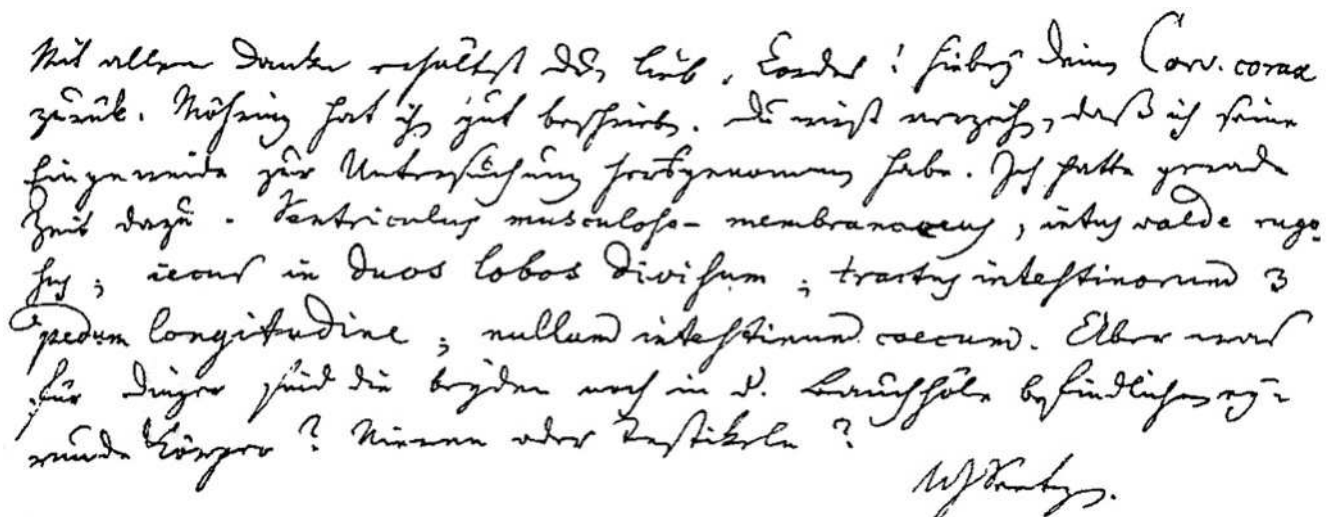 Mit allem Danke erhältst Du, lieb. Cordes! hiebey deinen Corv. corax
zurük. Möhring hat ihn gut beschrieben. Du wirst verzeihen, daß ich seine
Eingeweide zur Untersuchung herausgenommen habe. Ich hatte gerade
Zeit dazu. Ventriculus musculoso-membranaceus, intus valde rugo-
sus; iecur in duos lobos divisum; tractus intestinorum 3
pedum longitudine; nullum intestinum coecum. Aber was
für Dinger sind die beyden noch in d. Bauchhöle befindlichen ey-
runde Körper? Nieren oder Testikeln?